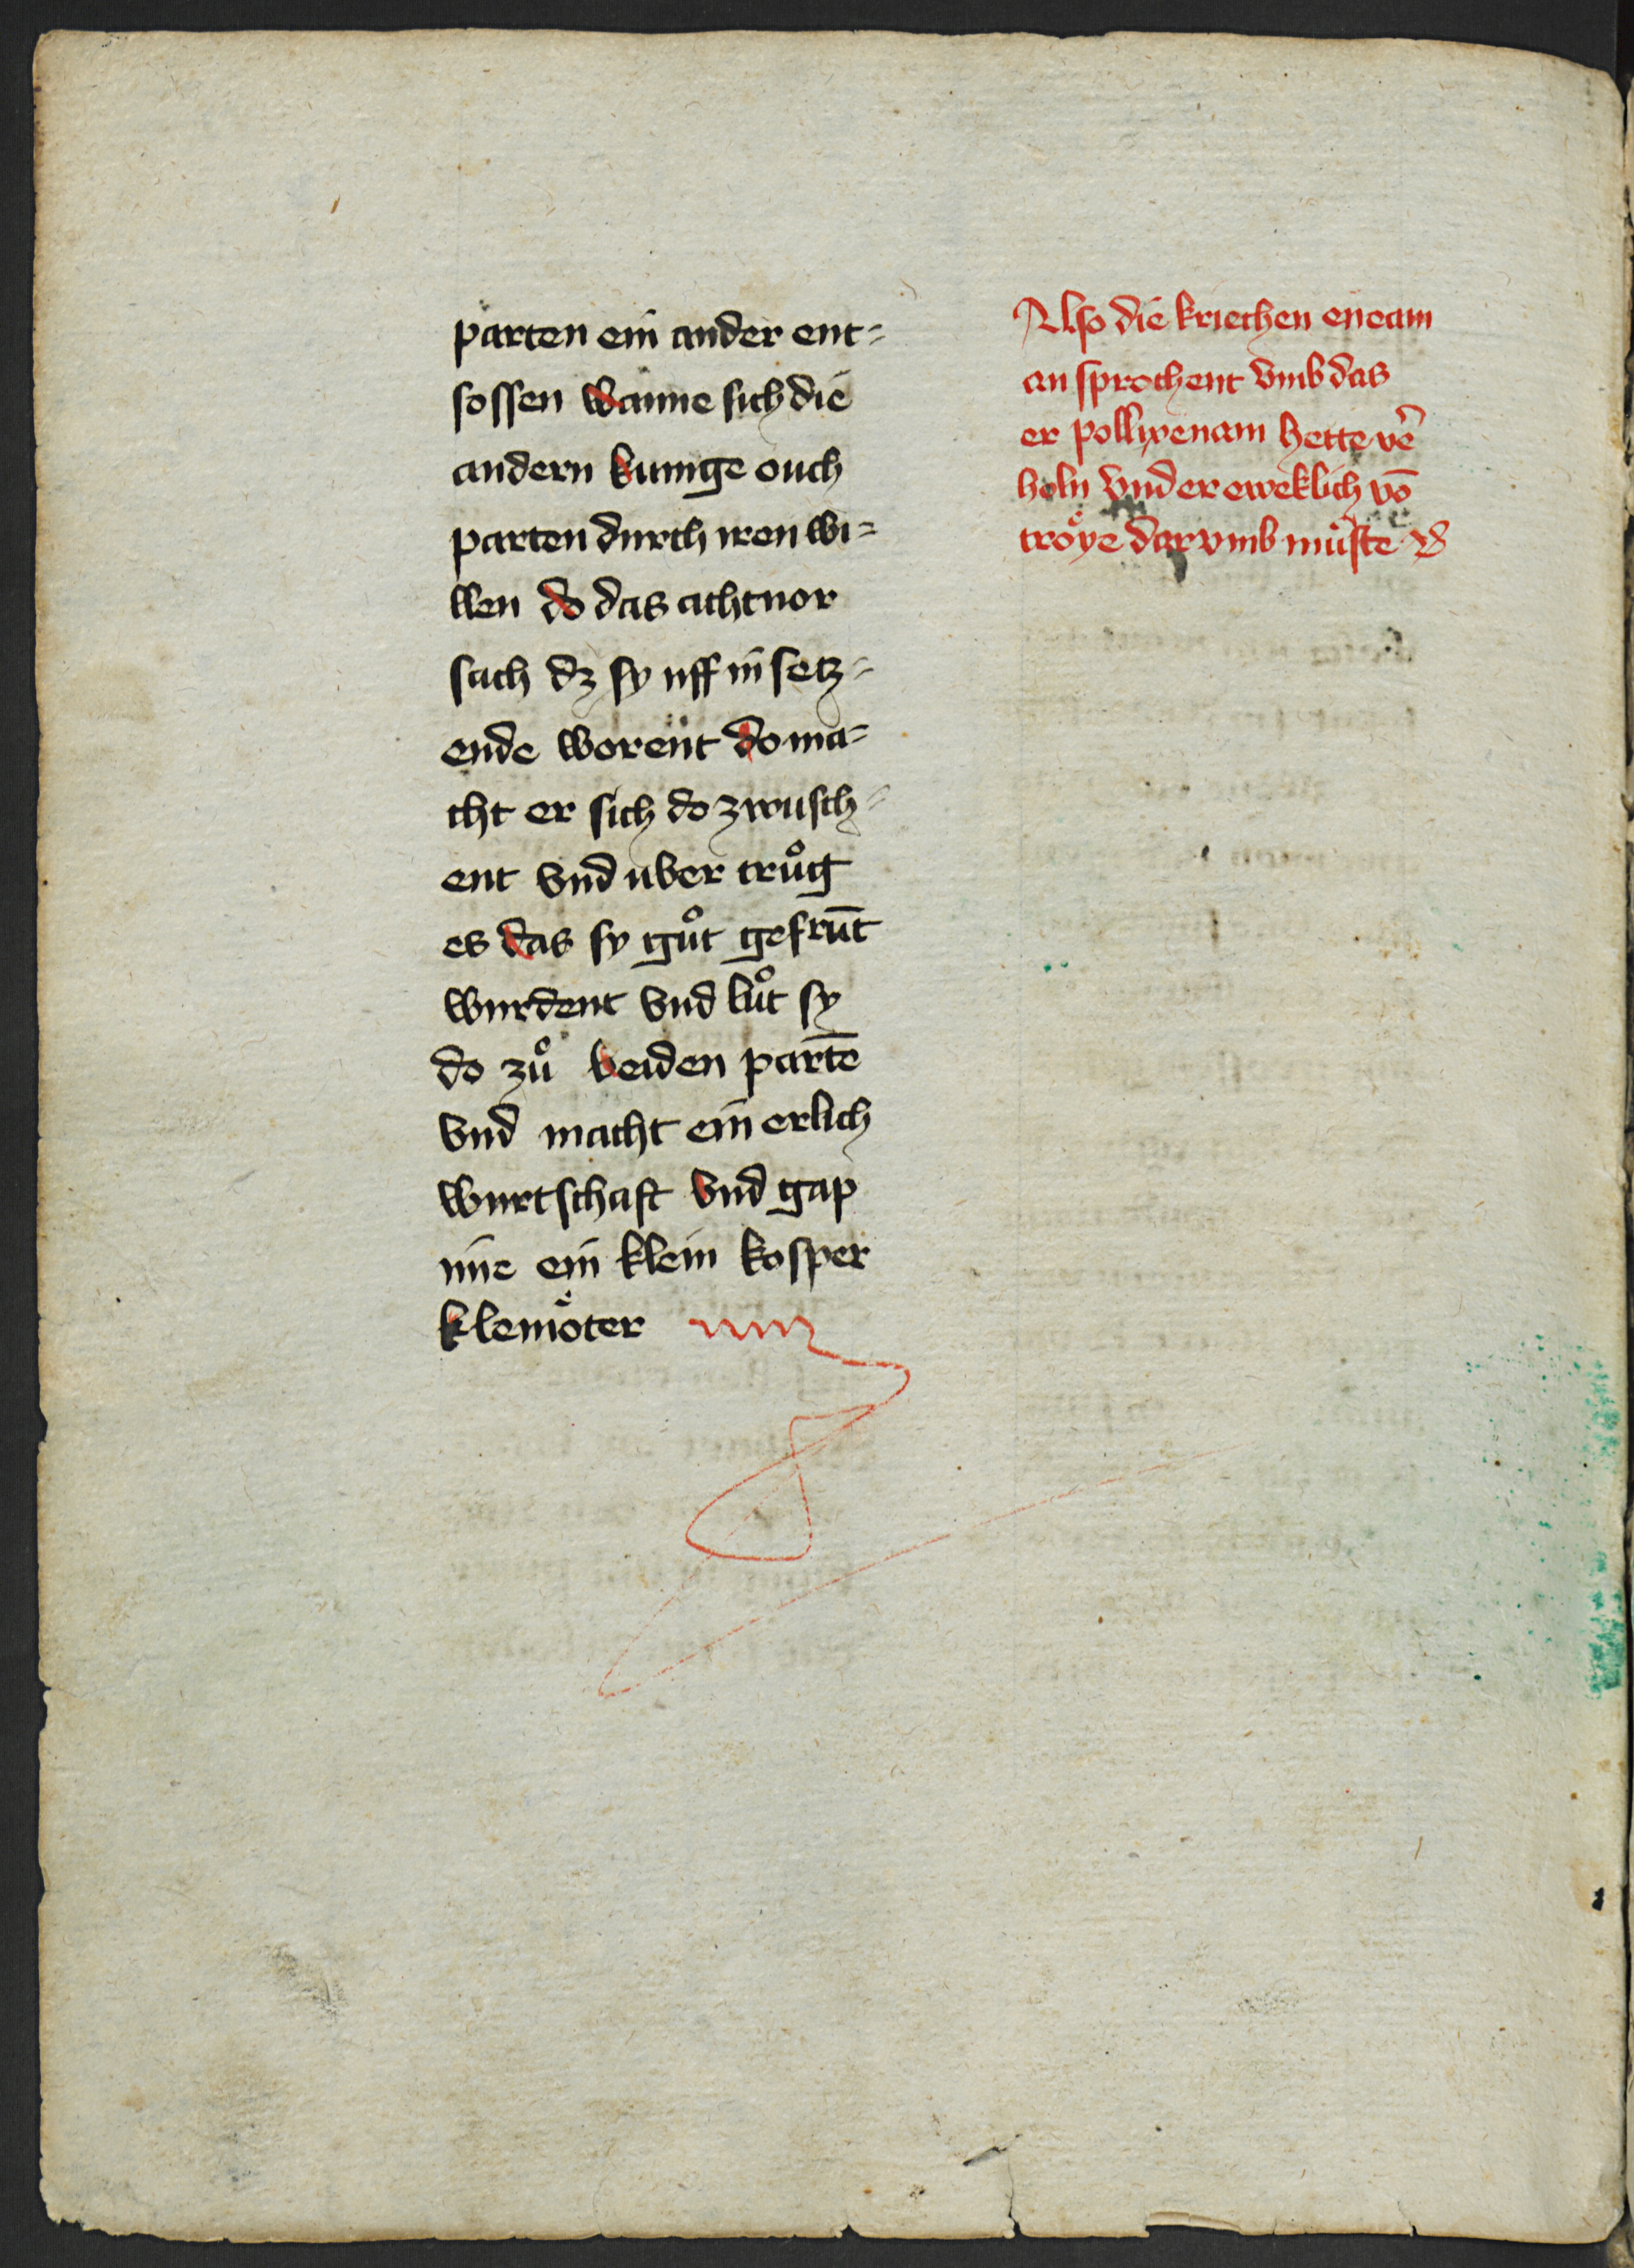 parten ein ander ent=
sossen wanne sich die
andern kunige ouch
parten durch iren wi=
llen do das achtnor
sach dz sy uff in setz=
ende worent do ma=
cht er sich do zwusch=
ent vnd uber trůg
es das sy gůt gefrūt
wurdent vnd lůt sy
do zů beiden partē
vnd macht ein erlich
wurtschaft vnd gap
nie ein klein kosper
kleinöter
Also die kriechen eneam
an sprochent vmb das
er pollixenam hette v͛e
holn vnd er eweklich vō
tröye dar vmb můste